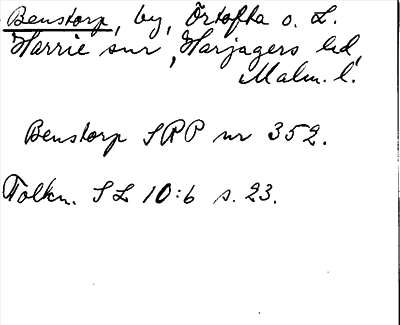 Benstorp, by, Örtofta o. L.
Harrie snr, Harjagers hd,
Malm. l.
Benstorp SRP nr 352.
Tolkn. SL 10:6 s. 23.